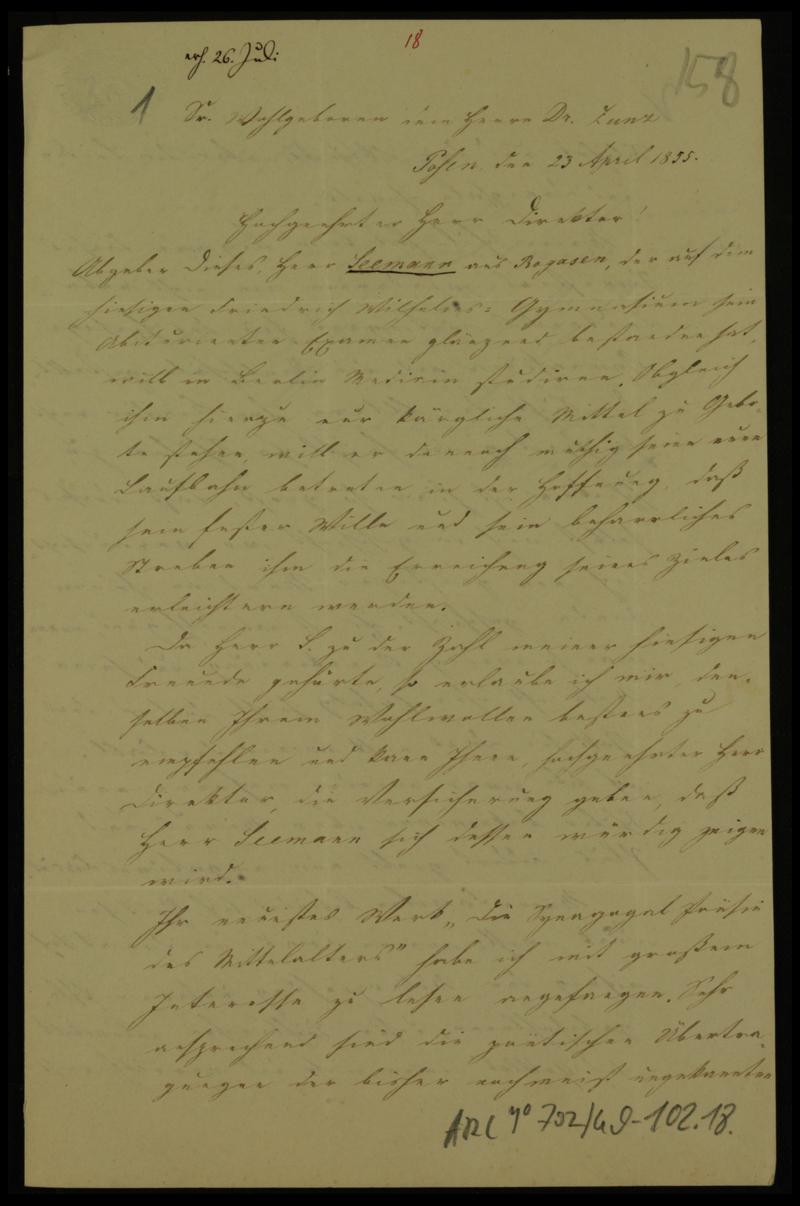 18
erh. 26. Juli
158
1
Sr. Wohlgeboren dem Herrn Dr. Zunz
Posen, den 23 April 1855.
Hochgeehrter Herr Direktor!
Abgeber Dieses, Herr Seemann aus Rogasen, der auf dem
hiesigen Friedrich Wilhelms-Gymnasium sein
Abiturienten Examen glänzend bestanden hat,
will in Berlin Medicin studiren. Obgleich
ihm hierzu nur kärgliche Mittel zu Gebo-
te stehen, will er dennoch muthig seine neue
Laufbahn betreten in der Hoffnung, daß
sein fester Wille und sein beharrliches
Streben ihm die Erreichung seines Zieles
erleichtern werden.
Da Herr S. zu der Zahl meiner hiesigen
Freunde gehörte, so erlaube ich mir, den-
selben Ihrem Wohlwollen bestens zu
empfehlen und kann Ihnen, hochgeehrter Herr
Direktor, die Versicherung geben, daß
Herr Seemann sich dessen würdig zeigen
wird.
Ihr neuestes Werk „Die Synagogal Poësie
des Mittelalters" habe ich mit großem
Interesse zu lesen angefangen. Sehr
ansprechend sind die poëtischen Übertra-
gungen der bisher noch meist ungekannten
ARC 4° 792/G9-102.18.